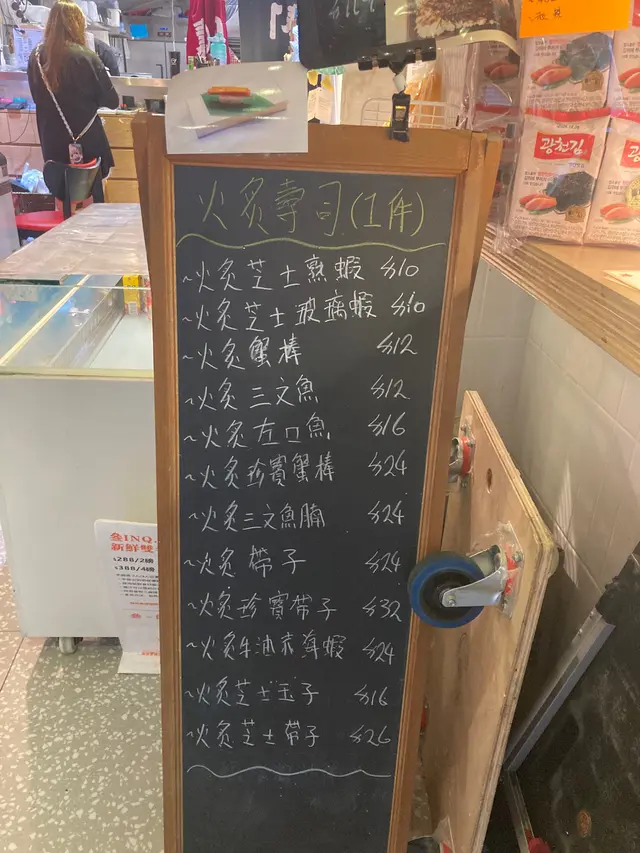 火炙壽司(1件)
~火炙芝士熟蝦 $10
~火炙芝士玻璃蝦 $10
~火炙蟹棒 $12
~火炙三文魚 $12
~火炙左口魚 $16
~火炙珍寶蟹棒 $24
~火炙三文魚腩 $24
~火炙帶子 $24
~火炙珍寶帶子 $32
~火炙牛油赤海蝦 $24
~火炙芝士玉子 $16
~火炙芝士帶子 $26
광천김
新鮮雙
$288/2磅
$388/4磅